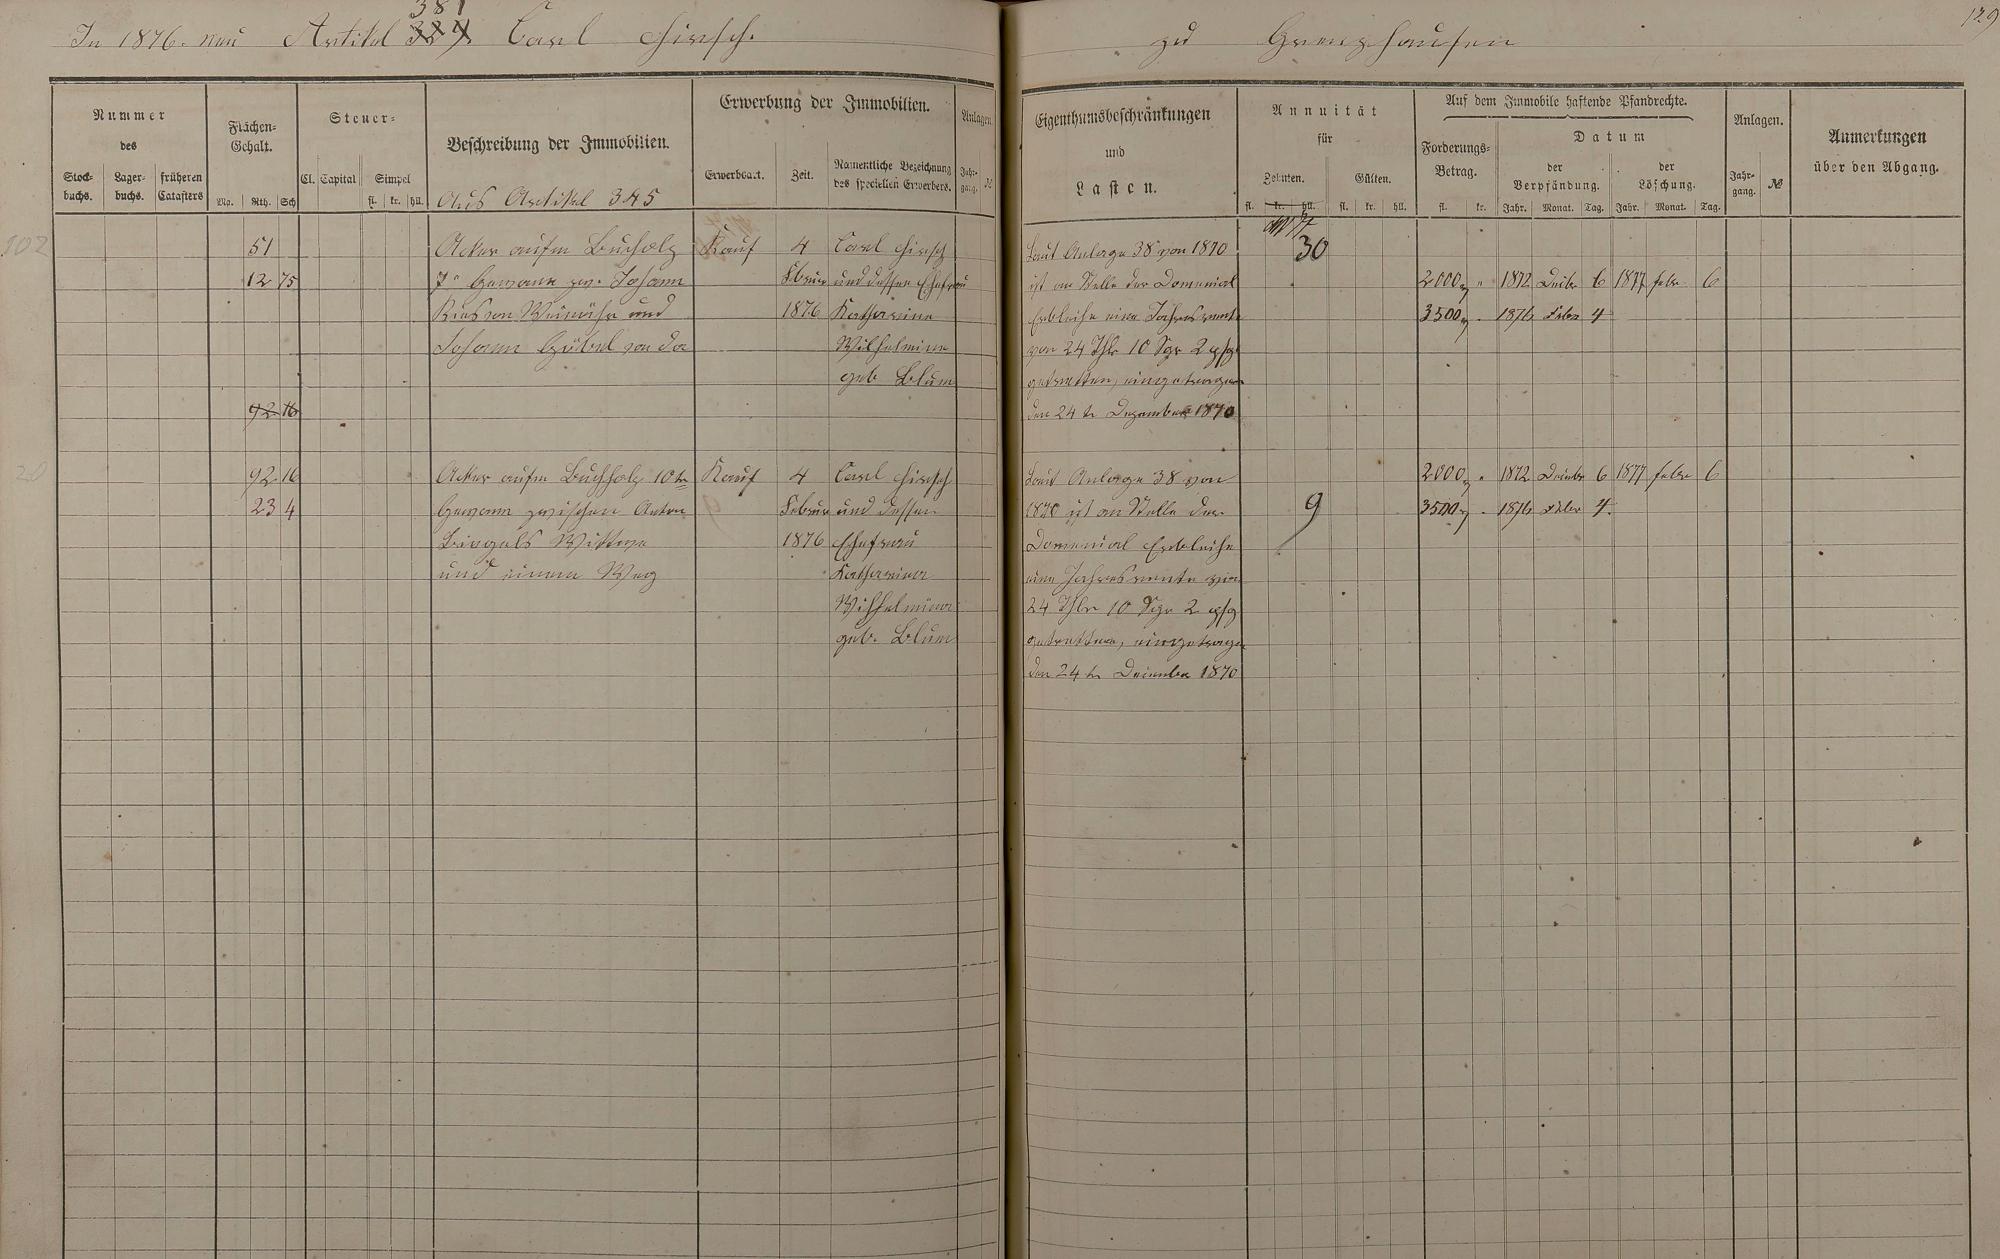 In 1876. neu Artikel 381 Carl Hirsch.
zu Grenzhausen
129
Nummer
des
Stock-
buchs.
Lager-
buchs.
früheren
Catasters
Flächen-
Gehalt.
Mg. Rth. Sch
Steuer-
Cl. Capital Simpel
fl. kr. hll.
Beschreibung der Immobilien.
Aus Artikel 345
Erwerbung der Immobilien.
Erwerbsart. Zeit.
Namentliche Bezeichnung
des speciellen Erwerbers.
Anlagen
Jahr-
gang. №
Eigenthumsbeschränkungen
und
Lasten.
Annuität
für
Zehnten. Gülten.
fl. kr. hll. fl. kr. hll.
Auf dem Immobile haftende Pfandrechte.
Forderungs-
Betrag.
fl. kr.
Datum
der
Verpfändung.
der
Löschung.
Jahr. Monat. Tag. Jahr. Monat. Tag.
Anlagen.
Jahr-
gang. №
Anmerkungen
über den Abgang.
102
51
12 75
Acker aufm Buchholz
7te Gewann zw. Johann
von und
Johann Göbel von da
92 16
Kauf
4
Februar
1876
Carl Hirsch
und dessen Ehefrau
Katharina
Wilhelmine
geb Blum
Laut Anlage 38 von 1870
ist an Stelle der Domenial
Erbleihe eine Jahresrente
von 24 Thlr 10 Sgr 2 pfg
getretten, eingetragen
den 24 tn Dezember 1870
30
2000 " 1872 Decbr 6 1877 febr 6
3500 . 1876 Febr 4
20
92 16
23 4
Acker aufm Buchholz 10te
Gewann zwischen Anton
Bingels Wittwe
und einem Weg
Kauf
4
Februar
1876
Carl Hirsch
und dessen
Ehefrau
Katharina
Wilhelmine
geb. Blum
Laut Anlage 38 von
1870 ist an Stelle der
Domenial Erbleihe
eine Jahresrente von
24 Thlr 10 Sgr 2 pfg
getretten, eingetragen
den 24 tn December 1870
9
2000 " 1872 Decbr 6 1877 febr 6
3500 . 1876 Febr 4.